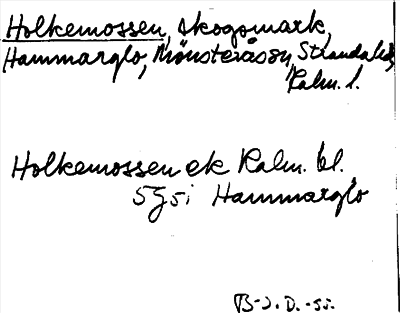 Holkemossen, skogsmark,
Hammarglo, Mönsterås sn, Stranda hd,
Kalm. l.
Holkemossen ek Kalm. bl.
5G5i Hammarglo